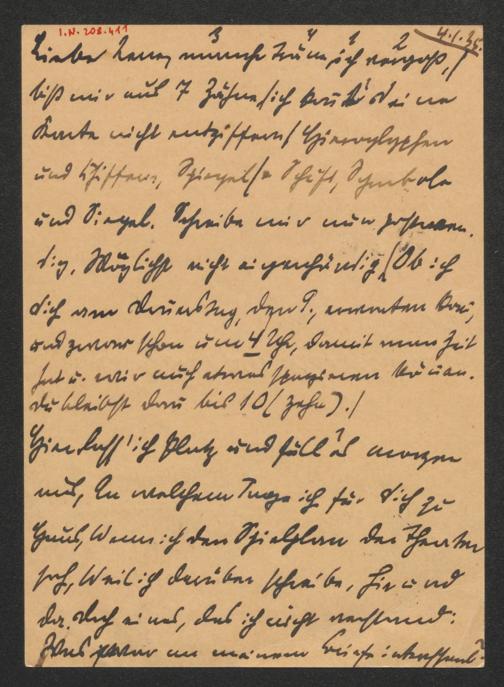 I.N. 208.411
4.1.35.
3 4 1 2
Liebe manche ich vergoß, /
biß mir aus 7 Zähne / ich deine
Karte nicht entziffern / Hieroglyphen
und Chiffern, Spiegel/= Schrift, Symbole
und Siegel. Schreibe mir nun postwen-
dig, Möglichst nicht eigenhändig, / Ob ich
dich am Donnerstag, den 9., erwarten kann,
und zwar schon um 4 Uhr, damit man Zeit
hat u. wir noch etwas spazieren können.
Du bleibst dann bis 10 (zehn). /
Hier lass' ich Platz und füll' es morgen
aus, An welchem Tage ich für dich zu
Haus, Wenn ich den Spielplan der Theater
sah, Weil ich darüber schreibe, hie und
da. Doch eines, das ich nicht verstand:
Was war an meinem Briefe interessant?